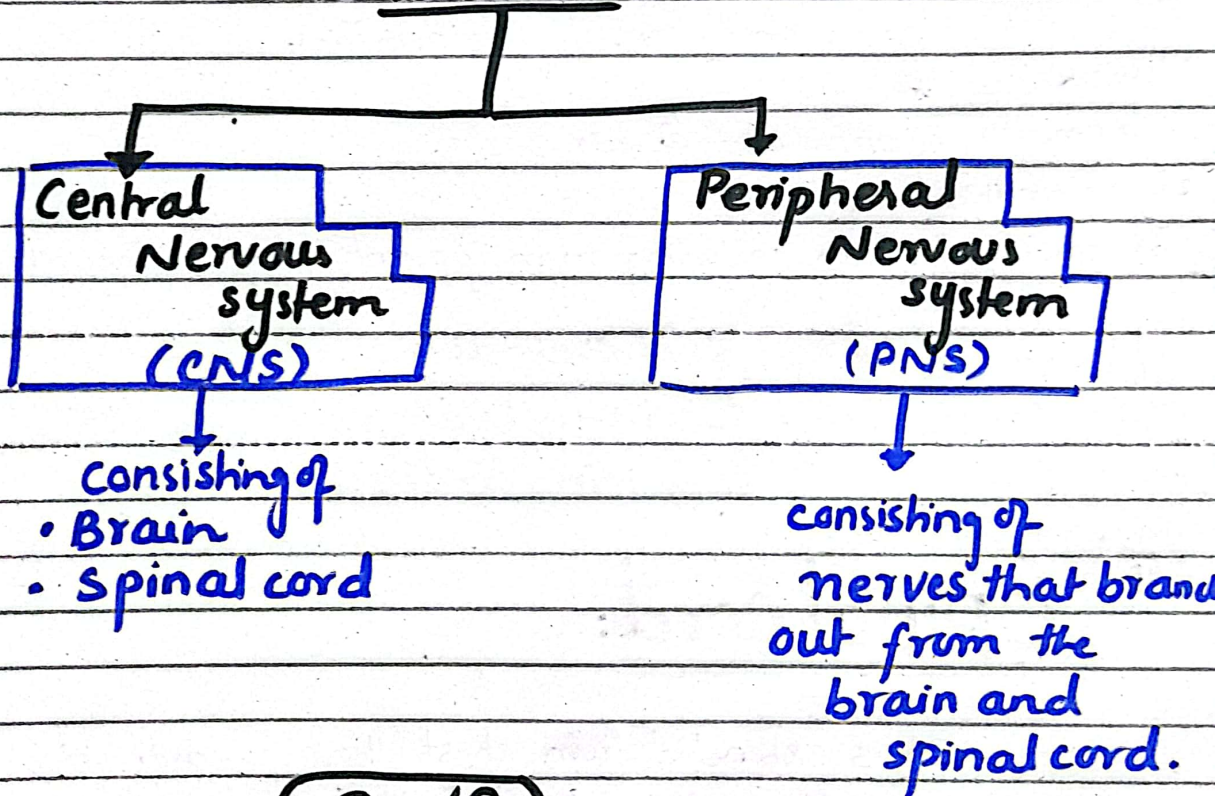 Central
Nervous
system
(CNS)
consisting of
• Brain
• spinal cord
Peripheral
Nervous
system
(PNS)
consisting of
nerves that
out from the
brain and
spinal cord.